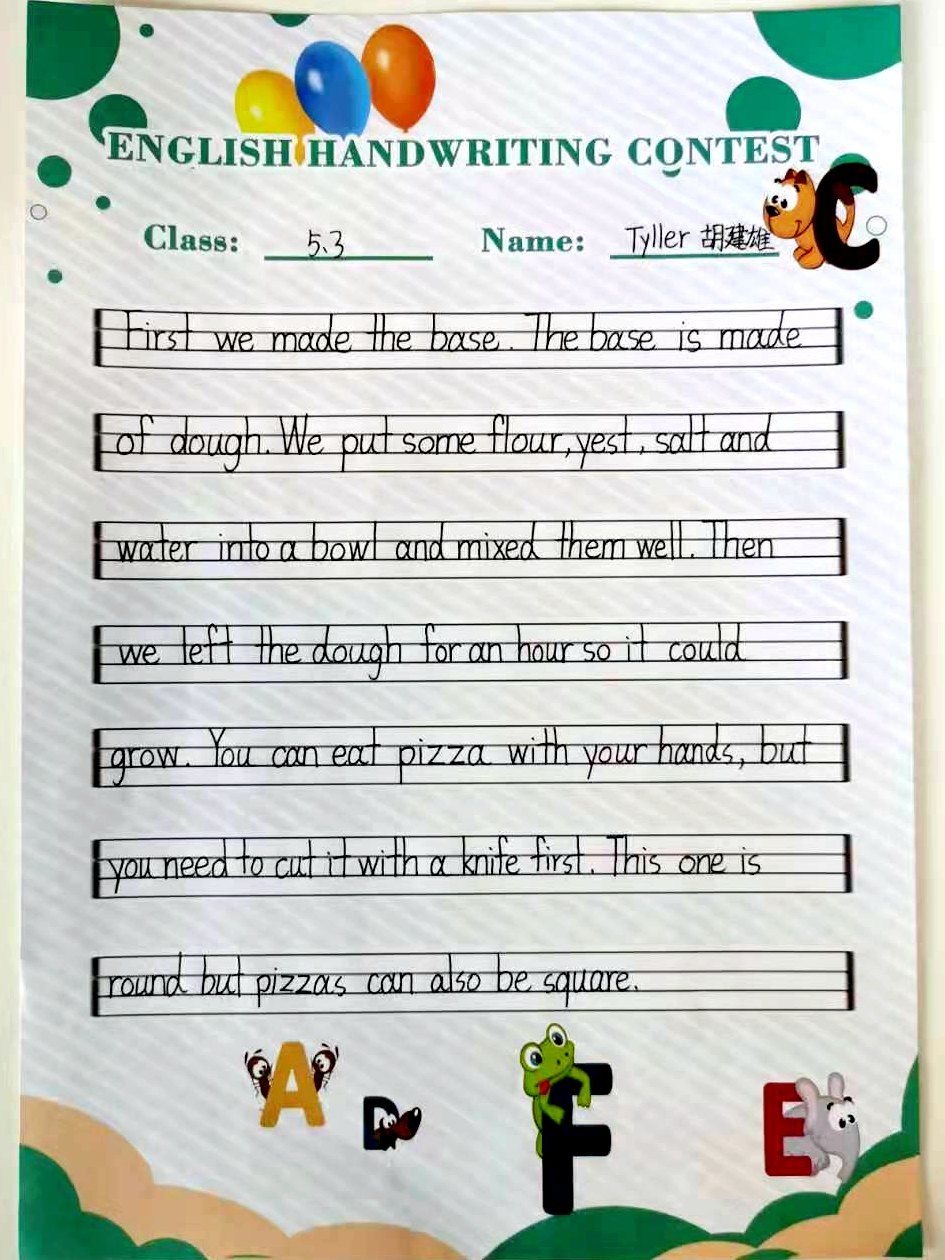 ENGLISH HANDWRITING CONTEST
Class: 5.3 Name: Tyller 胡建雄
C
First we made the base. The base is made
of dough. We put some flour, yest, salt and
water into a bowl and mixed them well. Then
we left the dough for an hour so it could
grow. You can eat pizza with your hands, but
you need to cut it with a knife first. This one is
round but pizzas can also be square.
A D F E